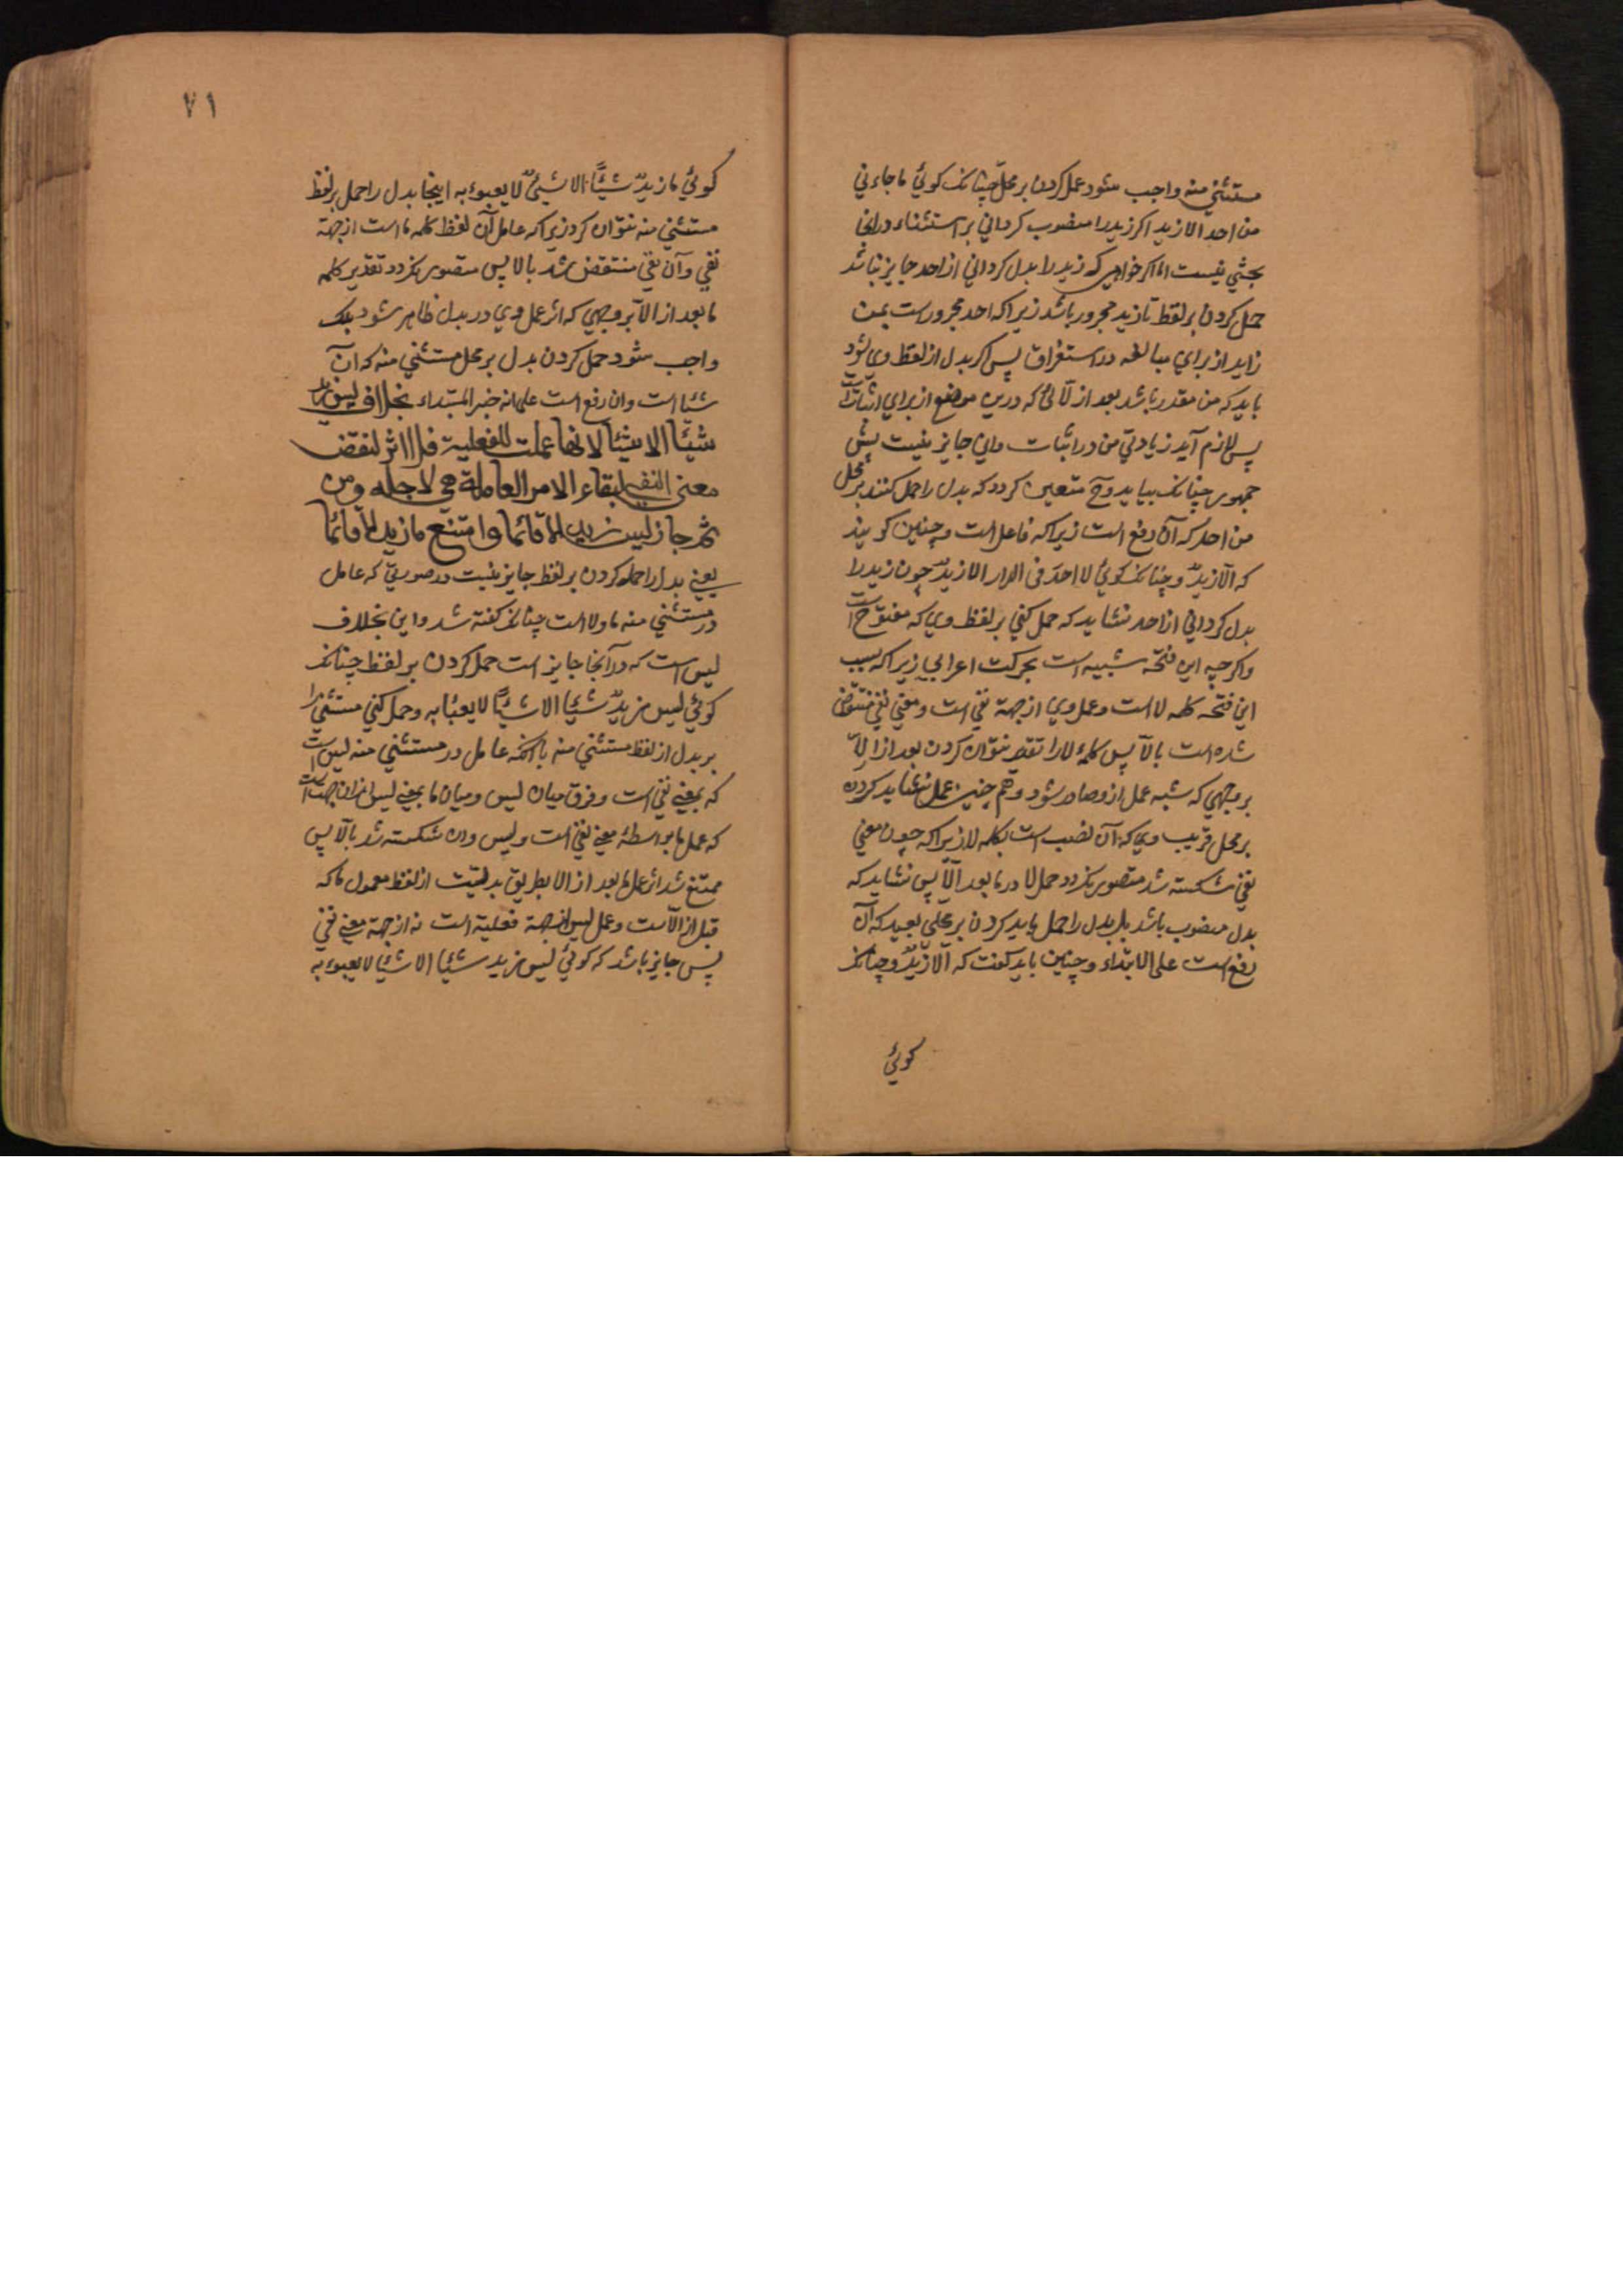 مستثني منه واجب شود عمل كردن بر محل چنانك كوئي ما جاءني
من احد الا زيد اكر زيد را منصوب كرداني بر استثناء در انجا
بحثي نيست اما اكر خواهي كه زيد را بدل كرداني از احد جايز نباشد
حمل كردن بر لفظ تا زيد مجرور باشد زيرا كه احد مجرورست بمن
زايد از براي مبالغه در استغراق پس اكر بدل از لفظ وي شود
بايد كه من مقدر باشد بعد از الائي كه درين موضع از براي اثبات است
پس لازم آيد زيادتي من در اثبات واين جايز نيست پيش
جمهور چنانك بيايد وح متعين كردد كه بدل را حمل كنند بر محل
من احد كه آن رفع است زيرا كه فاعل است وچنين كويند
كه الا زيدٌ وچنانك كوئي لا احدَ في الدار الا زيدٌ چون زيد را
بدل كرداني از احد نشايد كه حمل كني بر لفظ وي كه مفتوح است
واكر چه اين فتحه شبيه است بحركت اعرابي زيرا كه سبب
اين فتحه كلمه لا است وعمل وي از جهة نفي است ومعني نفي منتقض
شده است بالا پس كلمهٔ لا را تقدير نتوان كردن بعد از الا
بر وجهي كه شبه عمل ازو صادر شود وهم چنين عمل نشايد كردن
بر محل قريب وي كه آن نصب است بكلمه لا زيرا كه چون معني
نفي شكسته شد متصور نكردد حمل لا در ما بعد الا پس نشايد كه
بدل منصوب باشد بل بدل را حمل بايد كردن بر محلي بعيد كه آن
رفع است على الابتداء وچنين بايد كفت كه الا زيدٌ وچنانك
كوئي
٧١
كوئي ما زيدٌ شيئًا الا شيئٌ لا يعبوء به اينجا بدل را حمل بر لفظ
مستثني منه نتوان كرد زيرا كه عامل آن لفظ كلمه ما است از جهة
نفي وآن نفي منتقض شد بالا پس متصور نكردد تقدير كلمه
ما بعد از الا بر وجهي كه اثر عمل وي در بدل ظاهر شود بلك
واجب شود حمل كردن بدل بر محل مستثني منه كه آن
شيئا است وان رفع است على انه خبر المبتداء بخلاف ليس زيد
شيئًا الا شيئًا لانها عملت للفعلية فلا اثر لنقض
معنى النفي لبقاء الامر العاملة هي لاجله ومن
ثم جاز ليس زيد الا قائما وامتنع ما زيد الا قائما
يعني بدل را حمل كردن بر لفظ جايز نيست در صورتي كه عامل
در مستثني منه ما ولا است چنانك كفته شد واين بخلاف
ليس است كه در آنجا جايز است حمل كردن بر لفظ چنانك
كوئي ليس زيدٌ شيئا الا شيئًا لا يعبابه وحمل كني مستثني را
بر بدل از لفظ مستثني منه با آنكه عامل در مستثني منه ليس است
كه بمعني نفي است وفرق ميان ليس وميان ما بمعني ليس ازان جهت است
كه عمل ما بواسطهٔ معني نفي است وليس وان شكسته شد بالا پس
ممتنع شد اثر عمل ما بعد از الا بطريق بدليت از لفظ معمول ما كه
قبل از الا ست وعمل ليس از جهة فعلية است نه از جهة معني نفي
پس جايز باشد كه كوئي ليس زيد شيئا الا شيئا لا يعبوء به